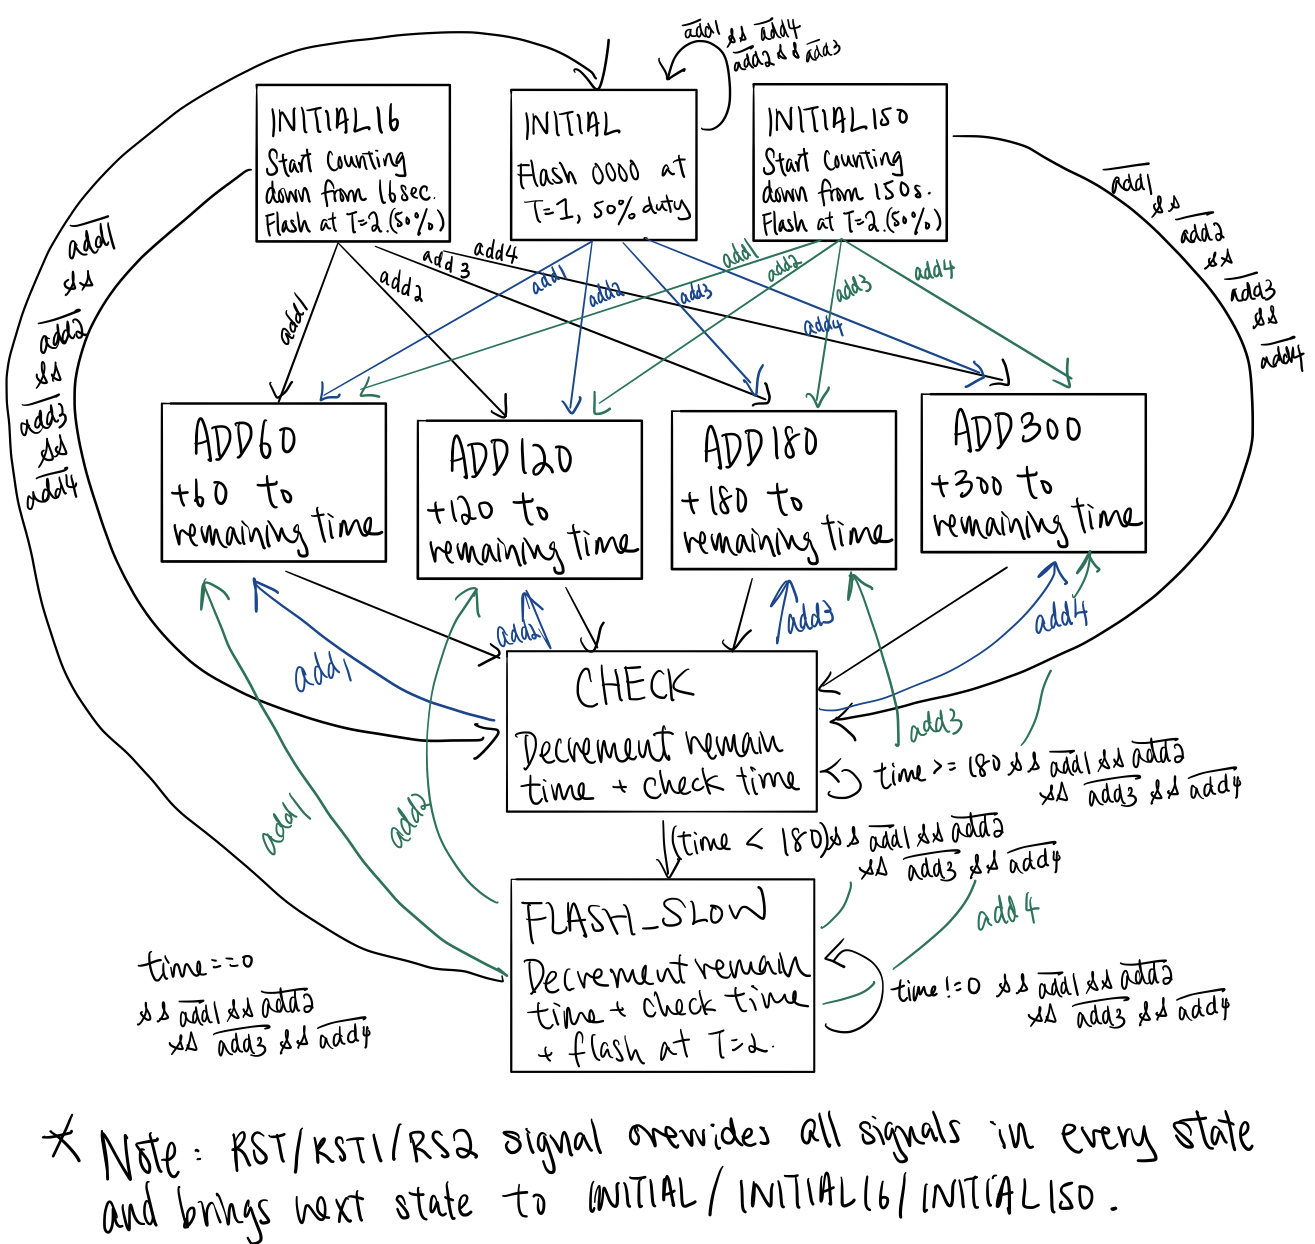 add1 && add4
add2 && add3
INITIAL16
Start counting
down from 16sec.
Flash at T=2.(50%)
INITIAL
Flash 0000 at
T=1, 50% duty
INITIAL150
Start counting
down from 150s.
Flash at T=2.(50%)
add1
&&
add2
&&
add3
&&
add4
add1
&&
add2
&&
add3
&&
add4
add1
add2
add3
add4
add1
add2
add3
add4
add1
add2
add3
add4
ADD60
+60 to
remaining time
ADD120
+120 to
remaining time
ADD180
+180 to
remaining time
ADD300
+300 to
remaining time
add1
add2
add3
add4
CHECK
Decrement remain
time + check time
add3
time >= 180 && add1 && add2
&& add3 && add4
add1
add2
(time < 180) && add1 && add2
&& add3 && add4
add4
FLASH_SLOW
Decrement remain
time + check time
+ flash at T=2.
time != 0 && add1 && add2
&& add3 && add4
time==0
&& add1 && add2
&& add3 && add4
* Note: RST/RST1/RS2 signal overwides all signals in every state
and brings next state to INITIAL/INITIAL16/INITIAL150.